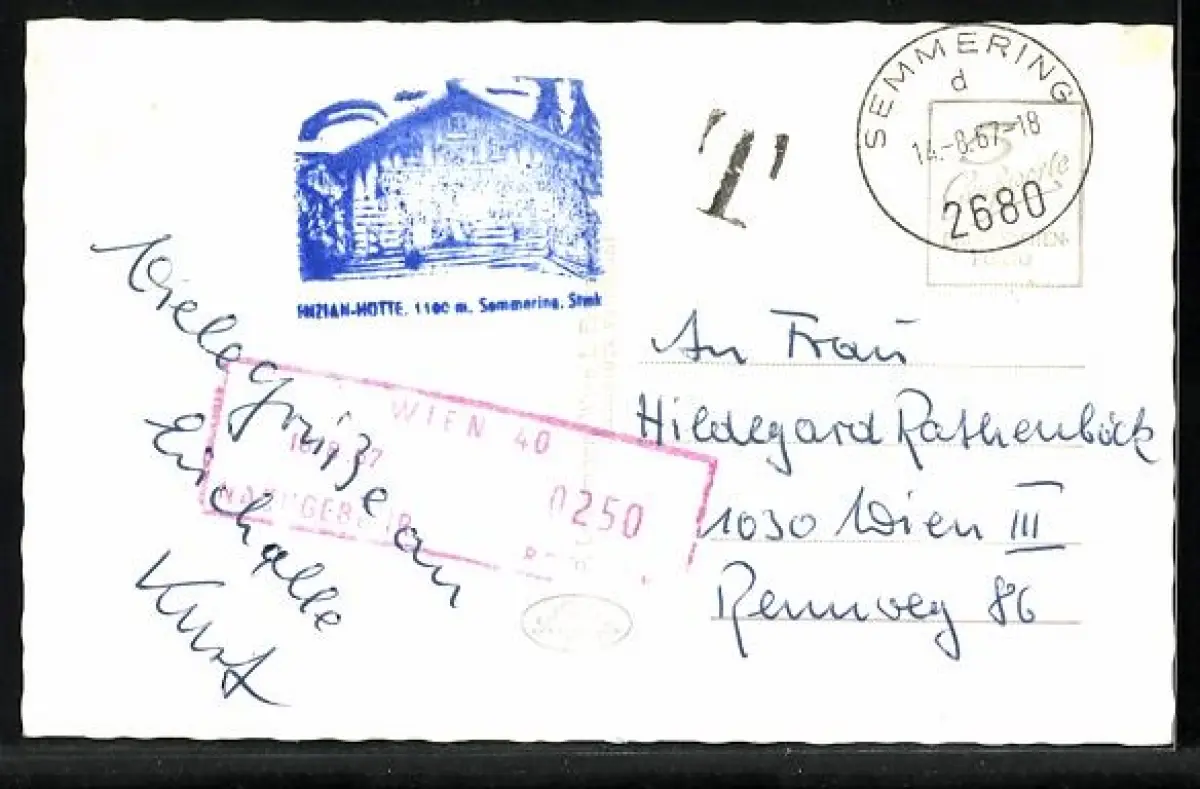 SEMMERING
d
14.-8.67-18
2680
T
ENZIAN-HÜTTE, 1100 m, Semmering, Stmk
Viele Grüße an
Euch alle
Kurt
WIEN 40
0250
An Frau
Hildegard Rathenböck
1030 Wien III
Rennweg 86